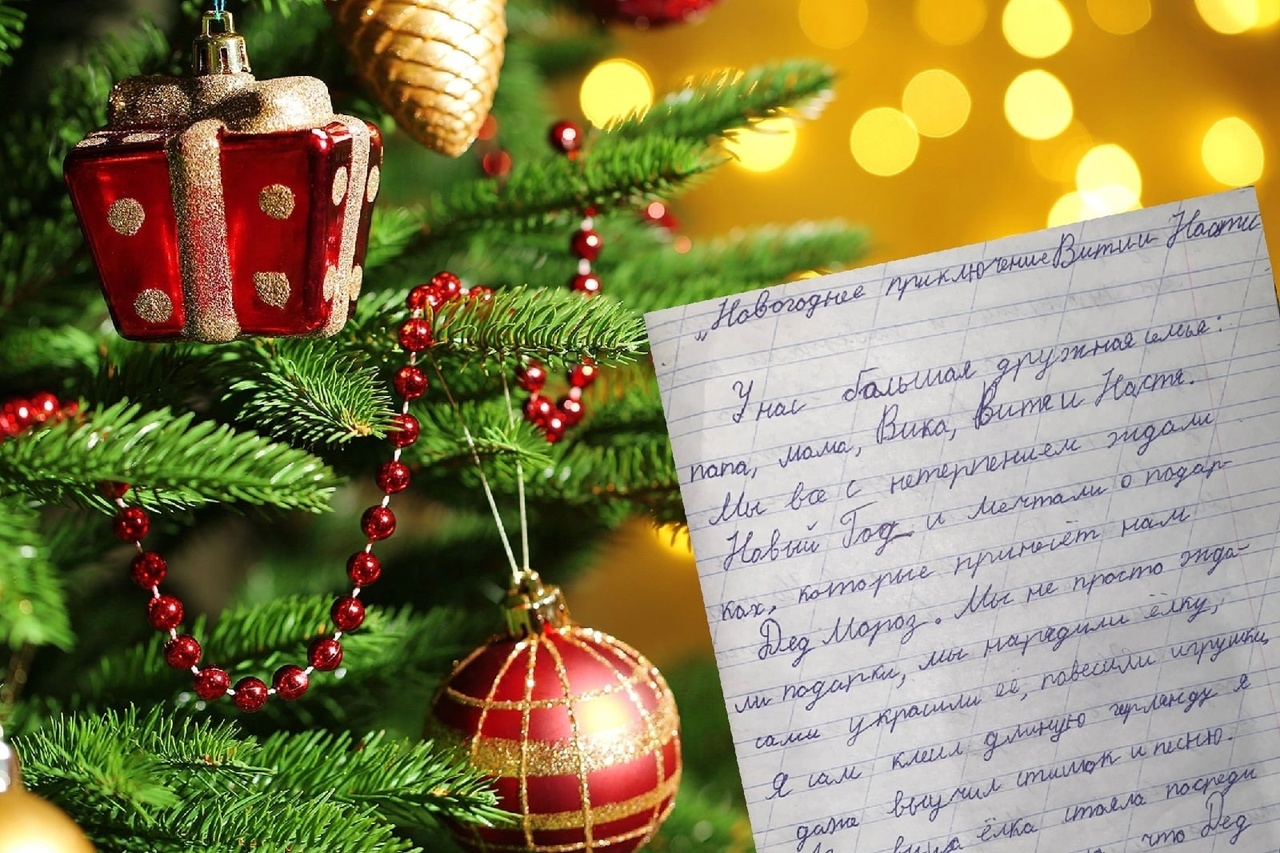 „Новогоднее приключение Вити и Насти
У нас большая дружная семья:
папа, мама, Вика, Витя и Настя.
Мы все с нетерпением ждали
Новый Год и мечтали о подар-
ках, которые принесёт нам
Дед Мороз. Мы не просто жда-
ли подарки, мы нарядили ёлку,
сами украсили её, повесили игрушки,
я сам клеил длиную герлянду я
даже выучил стишок и песню.
ёлка стояла посреди
что Дед